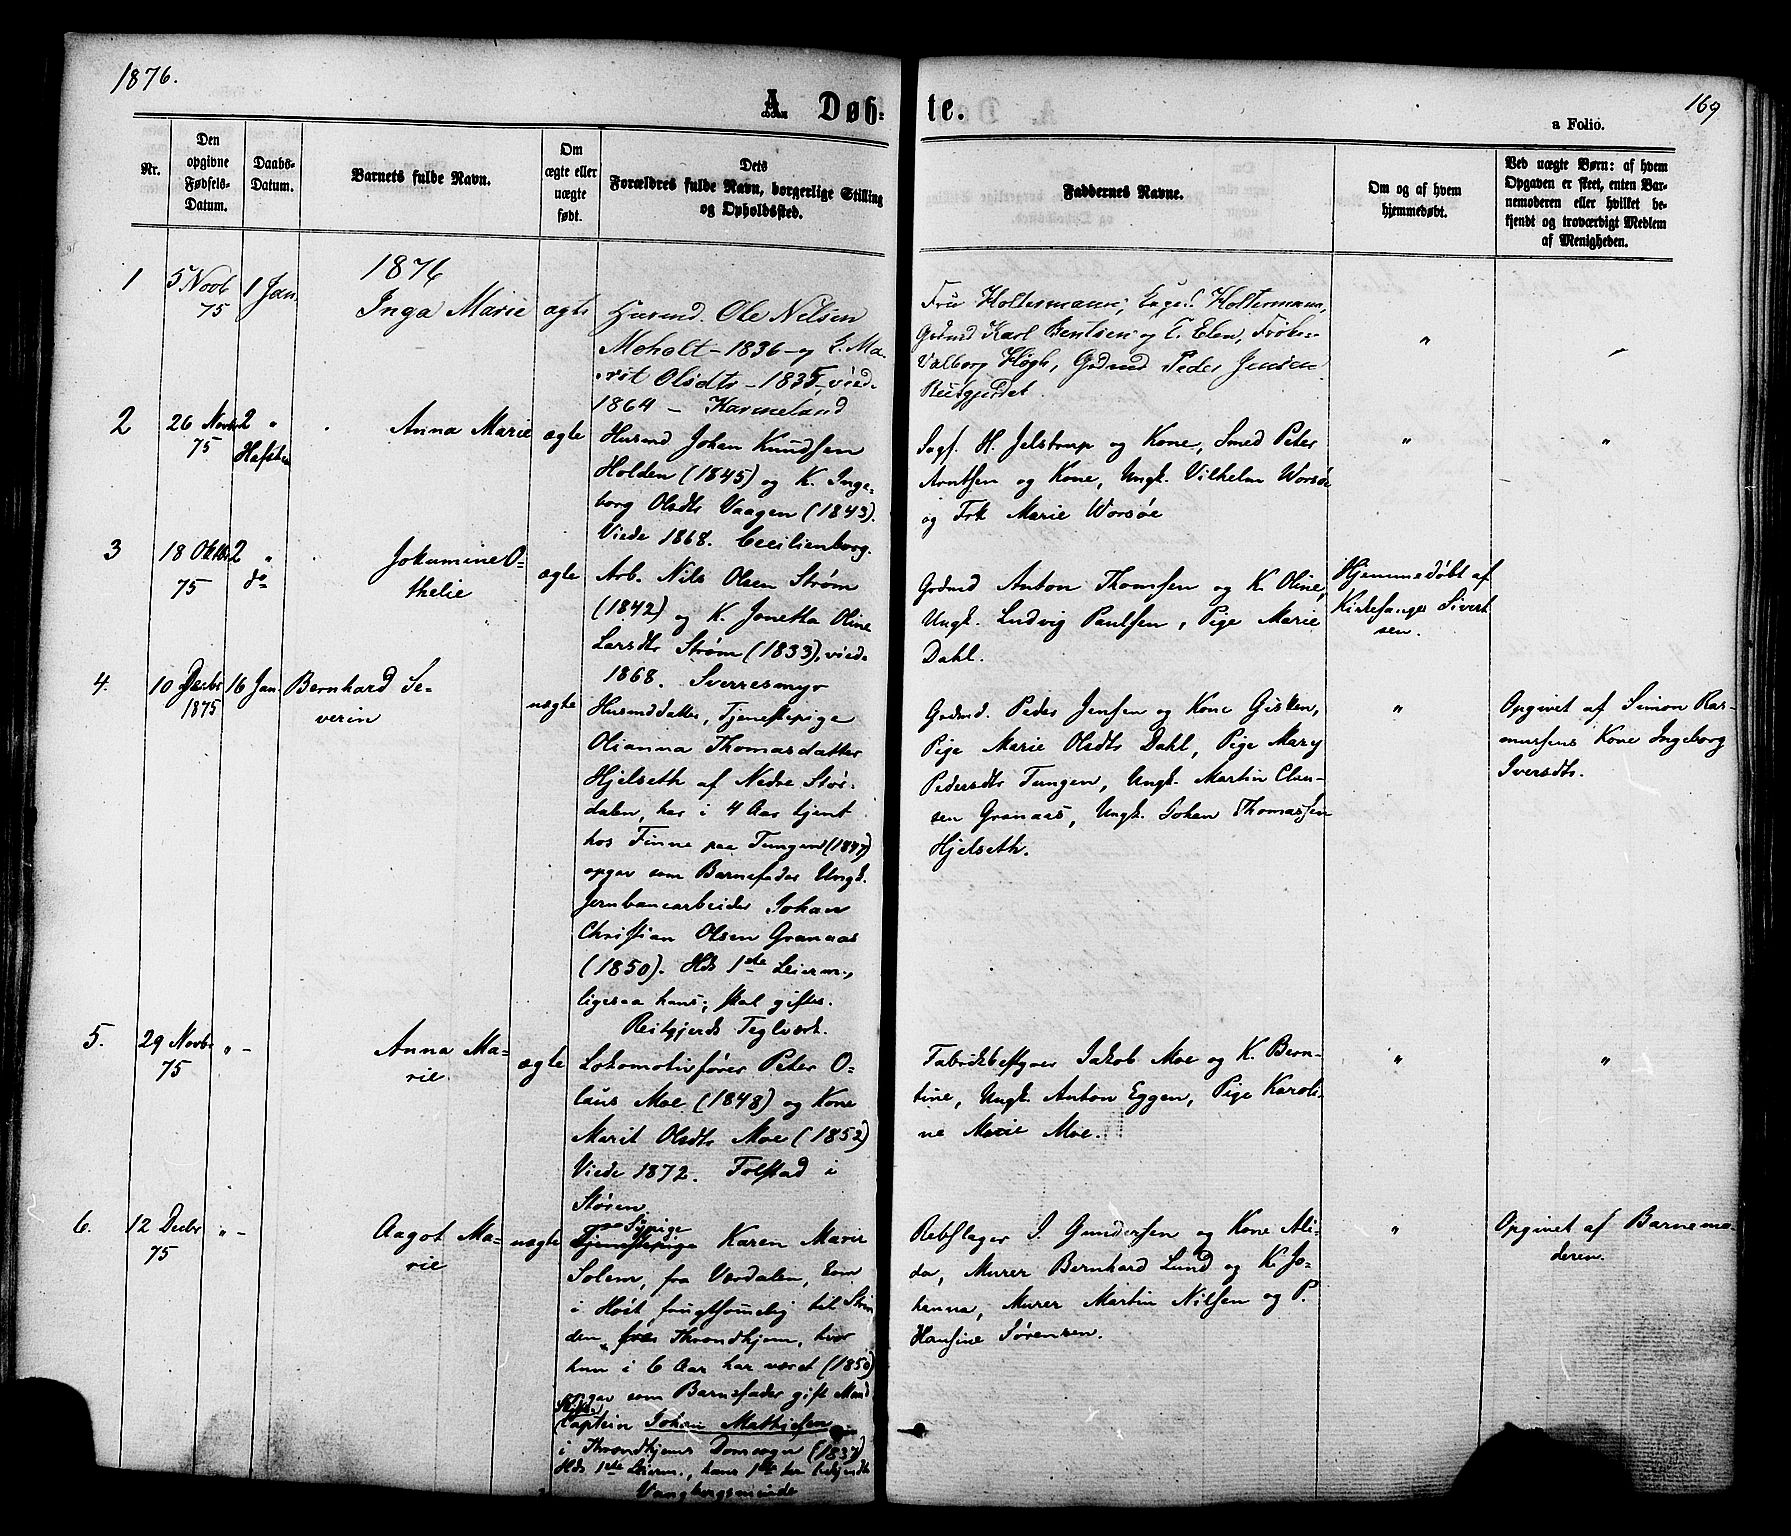 1876.
A. Døbte.
169
a Folio.
Nr.
Den opgivne Fødsels-Datum.
Daabs-Datum.
Barnets fulde Navn.
Om ægte eller uægte født.
Dets Forældres fulde Navn, borgerlige Stilling og Opholdssted.
Faddernes Navne.
Om og af hvem hjemmedøbt.
Ved uægte Børn: af hvem Opgaven er skeet, enten Barnemoderen eller hvilket bekjendt og troværdigt Medlem af Menigheden.
1876
1
5 Novb 75
1 Jan.
Inga Marie
ægte
Husmd. Ole Nilsen
Moholt - 1836 - og K. Ma-
rit Olsdtr - 1835, viede
1864 -
Fru Holtermann, Engel Holtermann,
Grdmd Karl Bentsen og K. Elen, Frøken
Valborg Høgh, Grdmd Peder Jensen
"
"
2
26 Novbr 75
2 "
Anna Marie
ægte
Husmd Johan Knudsen
Holden (1845) og K. Inge-
borg Olsdtr Vaagen (1843).
Viede 1868. Cecilienborg.
Sagf. H. Jelstrup og Kone, Smed Peter
Arntsen og Kone, Ungk. Vilhelm Worsøe
og Frk Marie Worsøe
"
"
3
18 Oktbr 75
2 " do
Jokumine O-
thelie
ægte
Arb. Nils Olsen Strøm
(1842) og K. Jonetha Oline
Larsdtr Strøm (1833), viede
1868. Sverresmyr
Grdmd Anton Thomsen og K. Oline,
Ungk. Ludvig Paulsen, Pige Marie
Dahl.
Hjemmedøbt af
Kirkesanger Sivert
sen.
4.
10 Decbr 1875
16 Jan.
Bernhard Se-
verin
uægte
Husmddatter, Tjenestepige
Olianna Thomasdatter
Hjelseth af Nedre Stør-
dalen, har i 4 Aar tjent
hos Finne paa Tungen (1847)
opgav som Barnefader Ungk.
Jernbanearbeider Johan
Christian Olsen Granaas
(1850). Hds 1ste Leierm.,
ligesaa hans; skal giftes.
Reitgjerds Teglværk.
Grdmd. Peder Jensen og Kone Gisken,
Pige Marie Olsdtr Dahl, Pige Mary
Pedersdtr Tungen, Ungk. Martin Clau-
sen Granaas, Ungk. Johan Thomassen
Hjelseth.
"
Opgivet af Simon Ras-
mussens Kone Ingeborg
Iversdtr.
5.
29 Novbr 75
" -
Anna Ma-
rie.
ægte
Lokomotivfører Peter O-
laus Moe (1848) og Kone
Marit Olsdtr Moe (1852)
Viede 1872. Folstad i
Støren.
Fabrikbestyrer Jakob Moe og K. Bern-
tine, Ungk. Anton Eggen, Pige Karoli-
ne Marie Moe.
"
"
6.
12 Decbr 75
" -
Aagot Ma-
rie
uægte
Sypige
Tjenestepige Karen Marie
Solem, fra Værdalen, kom
i Høst frugtsommelig til Strin
den, fra Throndhjem, hvor
hun i 6 Aar har været (1850)
opgav som Barnefader gift Mand
Skibs
Captein Johan Mathisen
i Throndhjems Domsogn (1837)
Hds 1ste Leierm., hans 1ste
Vangbergsminde
Rebslager J. Gundersen og Kone Ali-
da, Murer Bernhard Lund og K. Jo-
hanna, Murer Martin Nilsen og P.
Hansine Sørensen.
"
Opgivet af Barnemo-
deren.